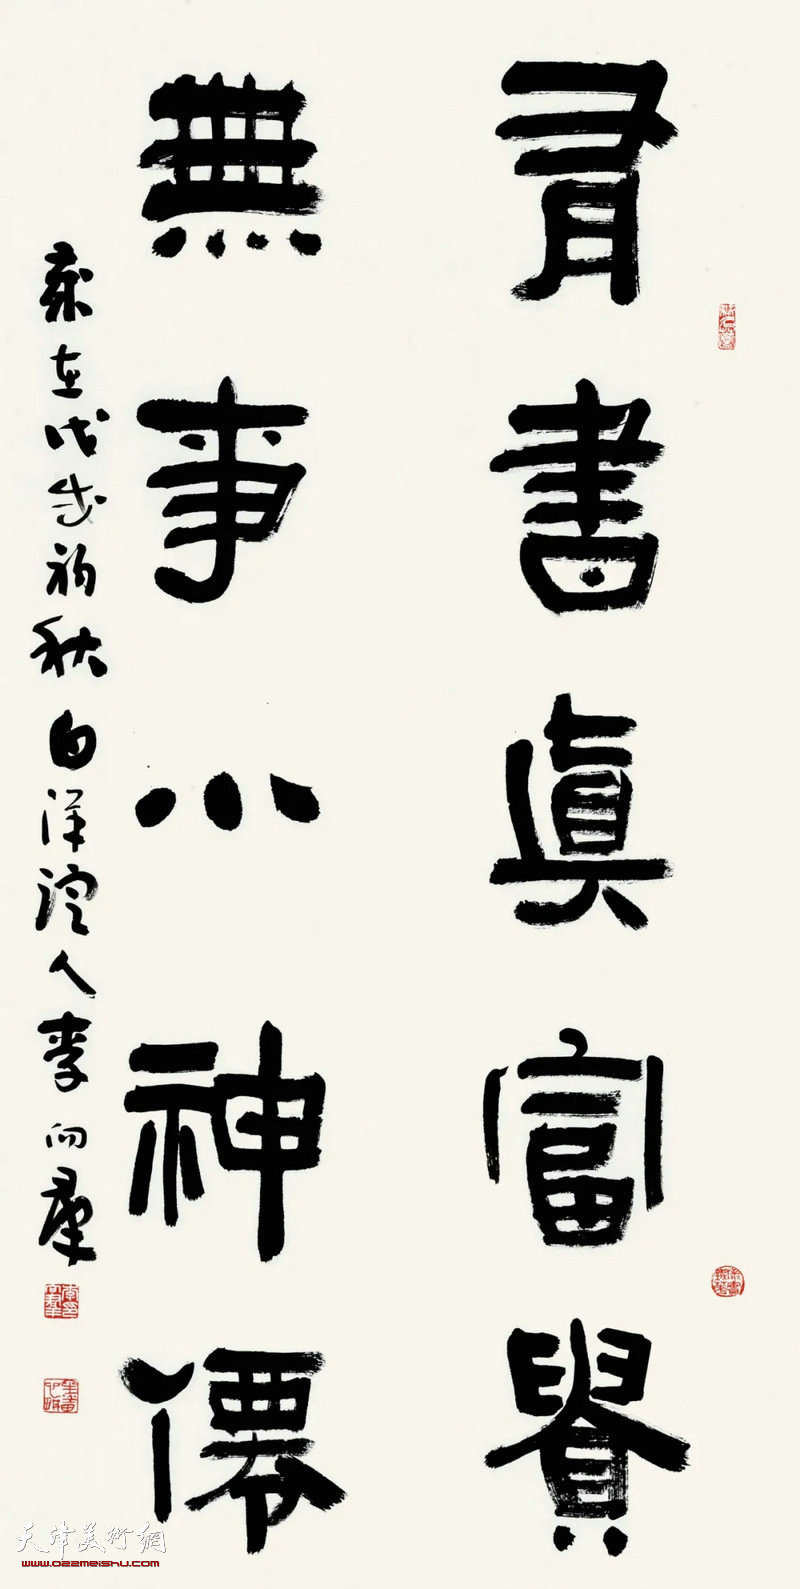 有書真富貴
無事小神僊
歲在戊戌初秋白洋淀人李向羣
天津美術網
www.022meishu.com